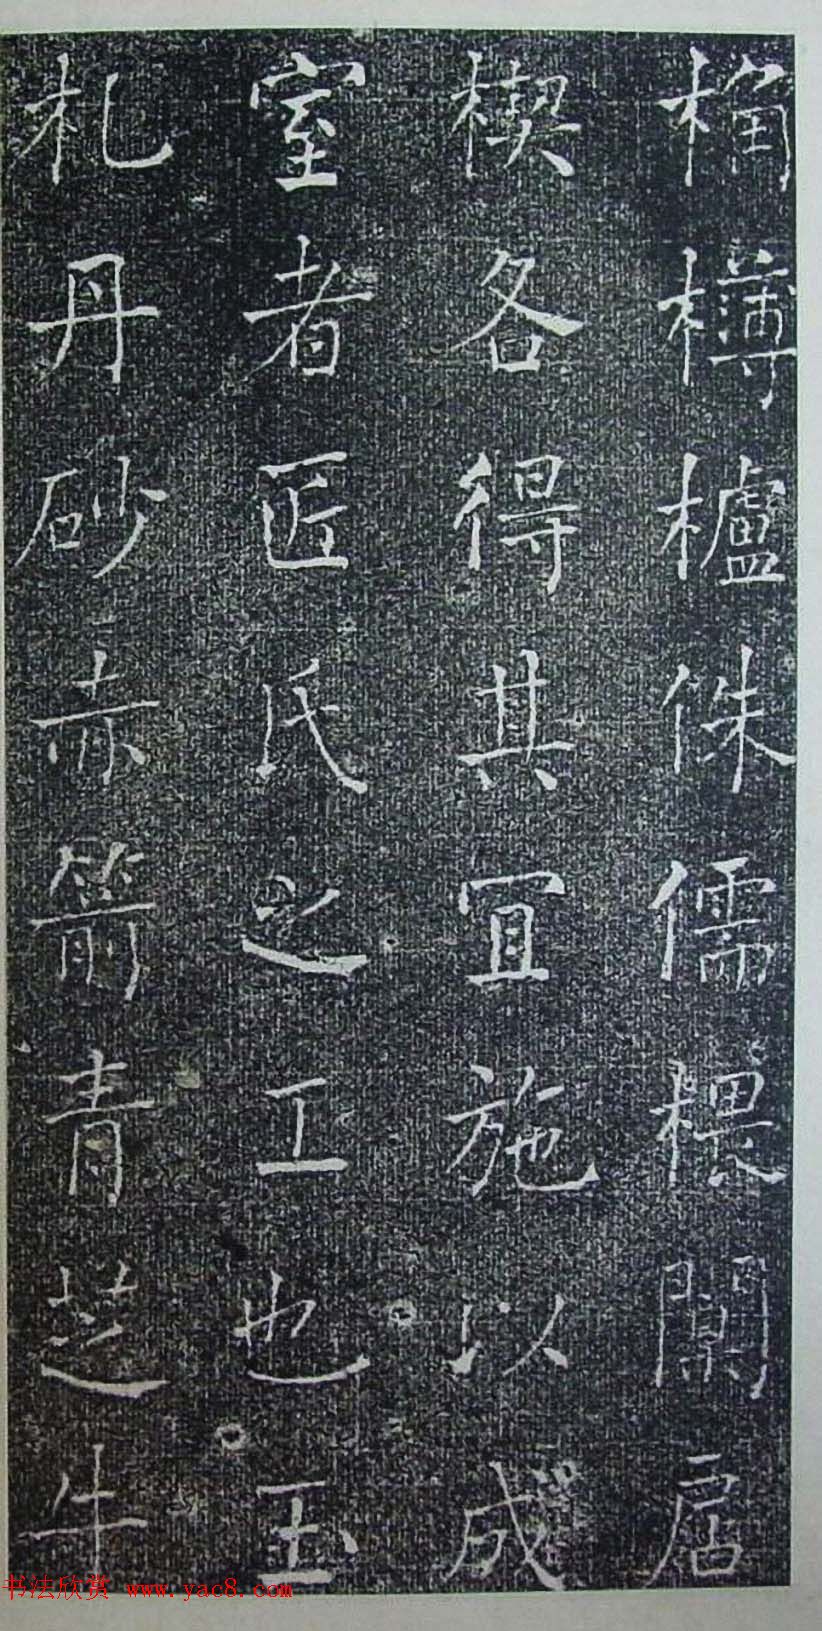 桷欂櫨侏儒椳闑扂
楔各得其宜施以成
室者匠氏之工也玉
札丹砂赤箭青芝牛
书法欣赏 www.yac8.com